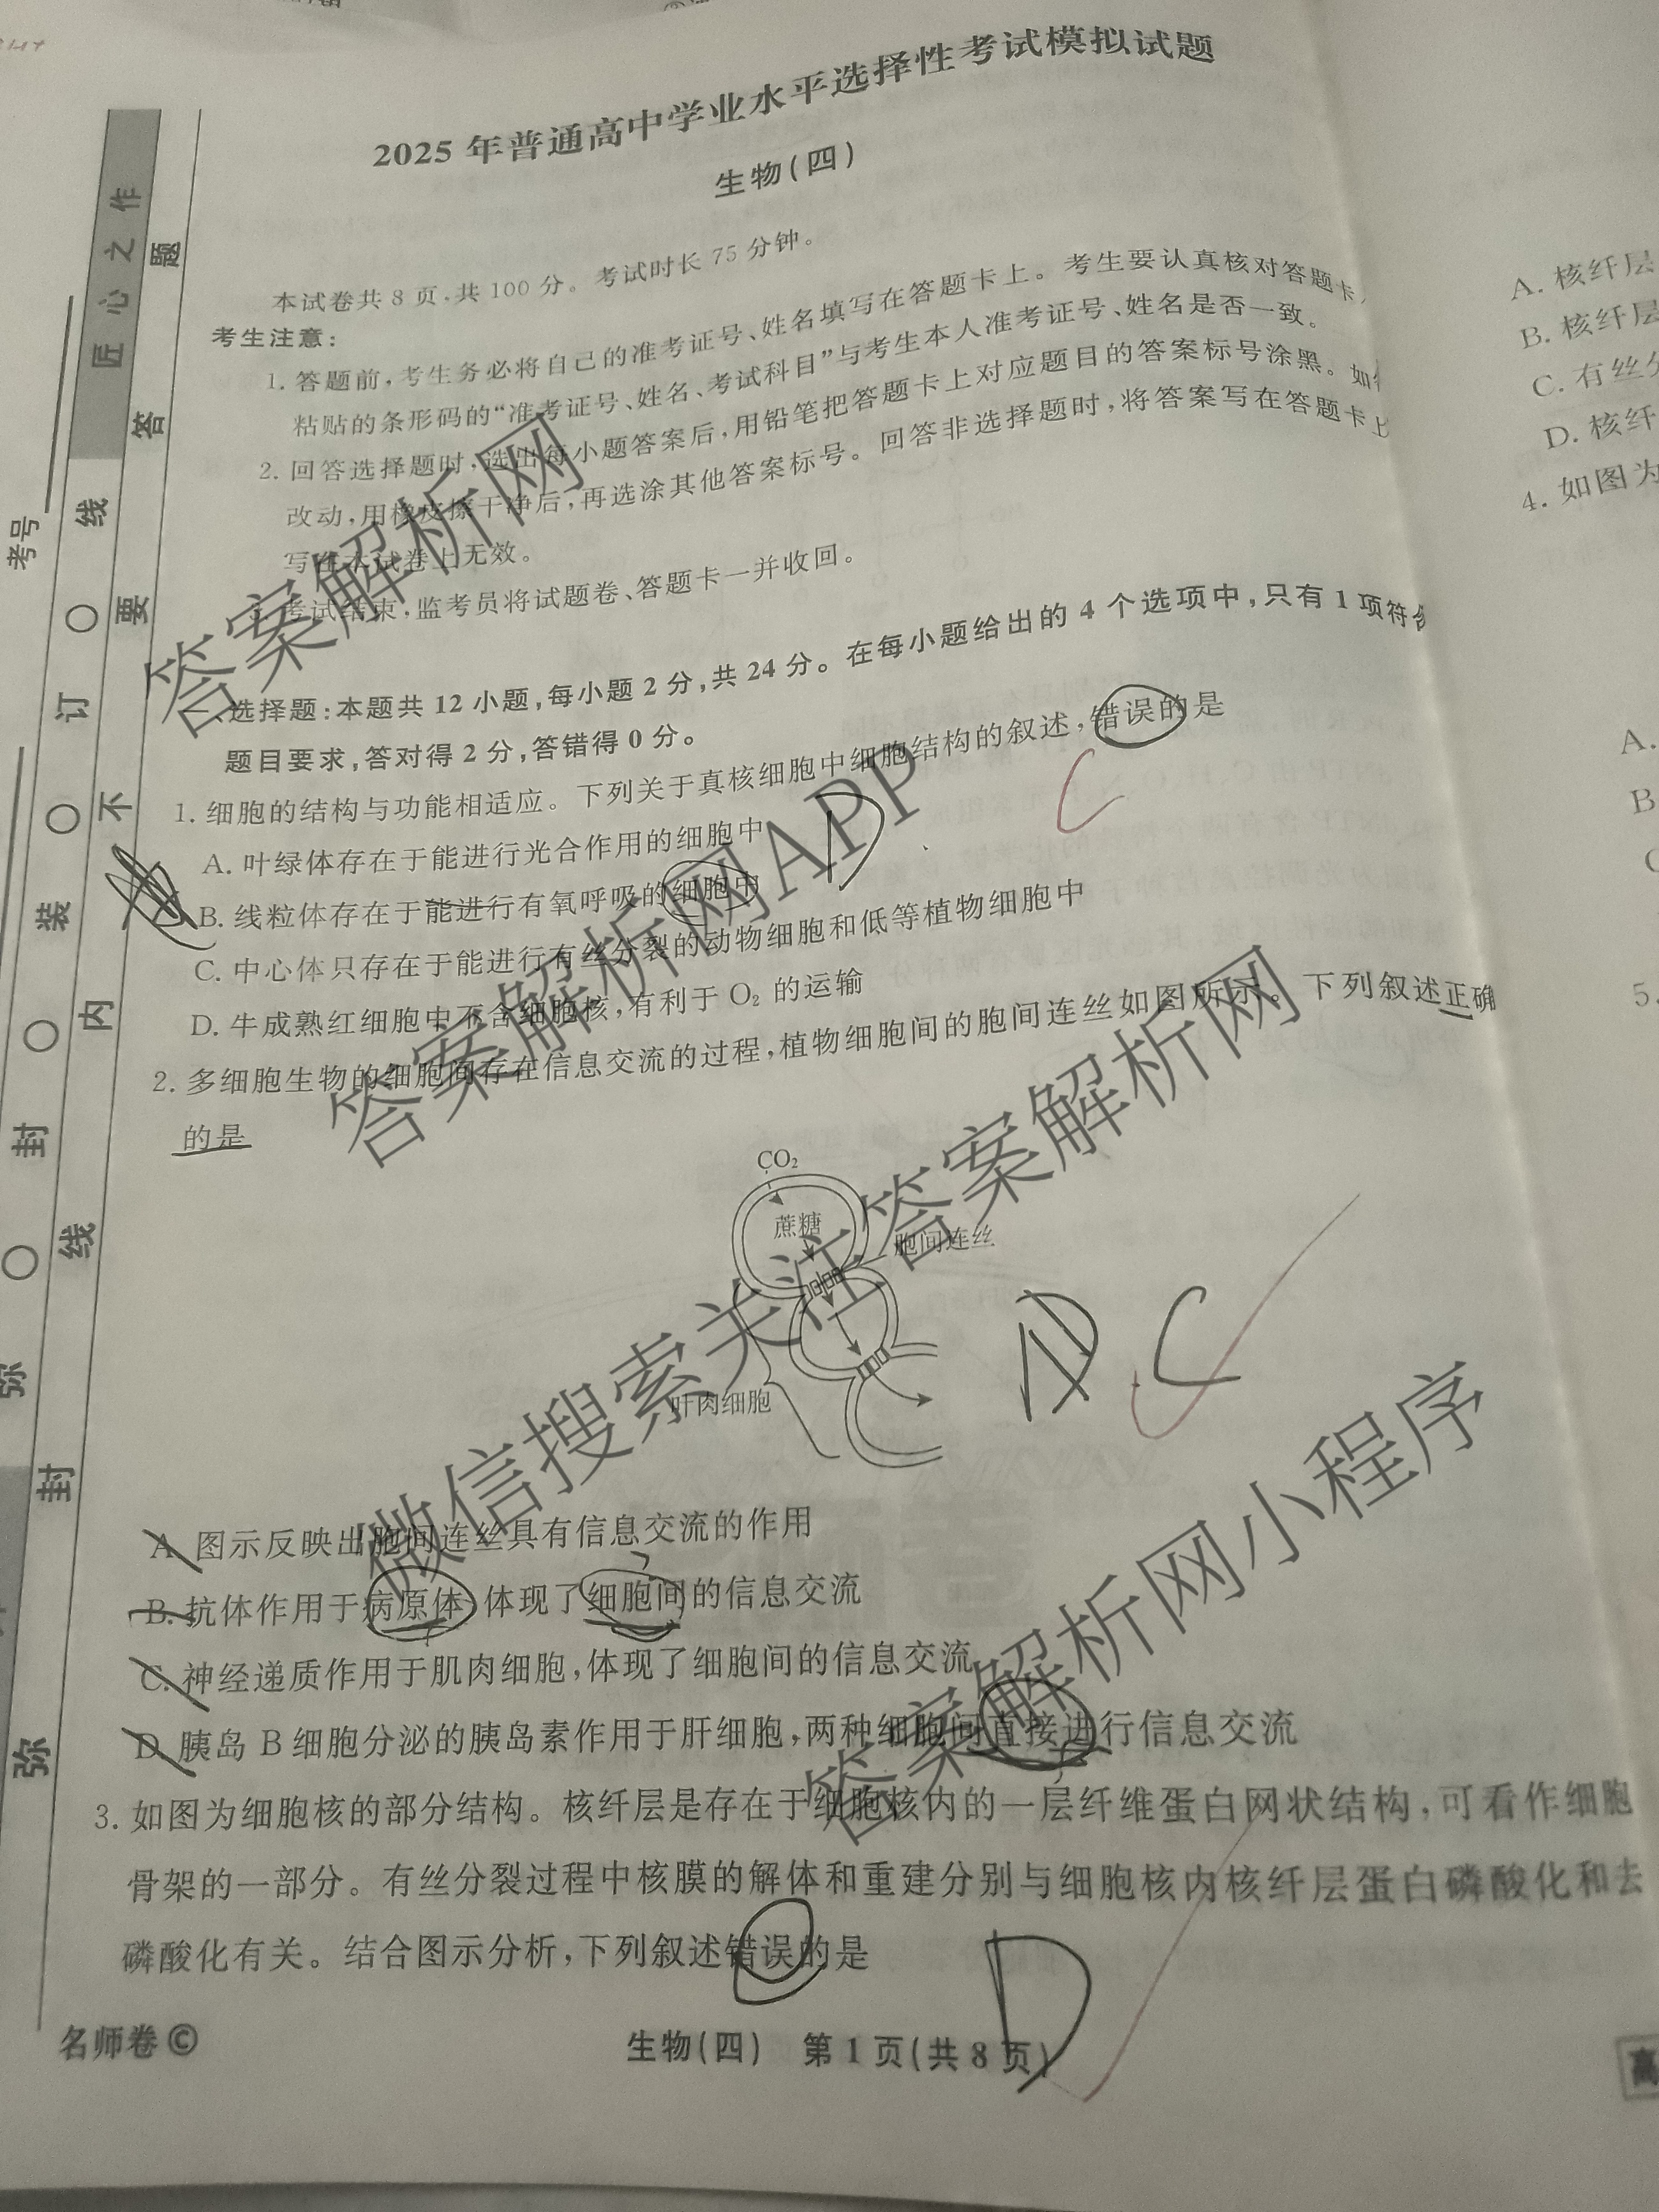 2025 年普通高中学业水平选择性考试模拟试题
生物(四)
本试卷共 8 页,共 100 分。考试时长 75 分钟。
考生注意:
1. 答题前,考生务必将自己的准考证号、姓名填写在答题卡上。考生要认真核对答题卡
粘贴的条形码的“准考证号、姓名、考试科目”与考生本人准考证号、姓名是否一致。
2. 回答选择题时,选出每小题答案后,用铅笔把答题卡上对应题目的答案标号涂黑。如
改动,用橡皮擦干净后,再选涂其他答案标号。回答非选择题时,将答案写在答题卡上
写在本试卷上无效。
考试结束,监考员将试题卷、答题卡一并收回。
选择题:本题共 12 小题,每小题 2 分,共 24 分。在每小题给出的 4 个选项中,只有 1 项符合
题目要求,答对得 2 分,答错得 0 分。
1. 细胞的结构与功能相适应。下列关于真核细胞中细胞结构的叙述,错误的是
C
A. 叶绿体存在于能进行光合作用的细胞中
D
B. 线粒体存在于能进行有氧呼吸的细胞中
C. 中心体只存在于能进行有丝分裂的动物细胞和低等植物细胞中
D. 牛成熟红细胞中不含细胞核,有利于 O₂ 的运输
2. 多细胞生物的细胞间存在信息交流的过程,植物细胞间的胞间连丝如图所示。下列叙述正确
的是
CO₂
蔗糖
胞间连丝
叶肉细胞
D C
A. 图示反映出胞间连丝具有信息交流的作用
B. 抗体作用于病原体,体现了细胞间的信息交流
C. 神经递质作用于肌肉细胞,体现了细胞间的信息交流
D. 胰岛 B 细胞分泌的胰岛素作用于肝细胞,两种细胞间直接进行信息交流
3. 如图为细胞核的部分结构。核纤层是存在于细胞核内的一层纤维蛋白网状结构,可看作细胞
骨架的一部分。有丝分裂过程中核膜的解体和重建分别与细胞核内核纤层蛋白磷酸化和去
磷酸化有关。结合图示分析,下列叙述错误的是
D
名师卷 ©
生物(四) 第 1 页(共 8 页)
匠心之作
考号
弥 封 线 内 不 要 答 题
弥 封 装 订 线
A. 核纤层
B. 核纤层
C. 有丝分
D. 核纤
4. 如图为
A.
B
C
5.
高
答案解析网
答案解析网APP
微信搜索关注答案解析网
答案解析网小程序